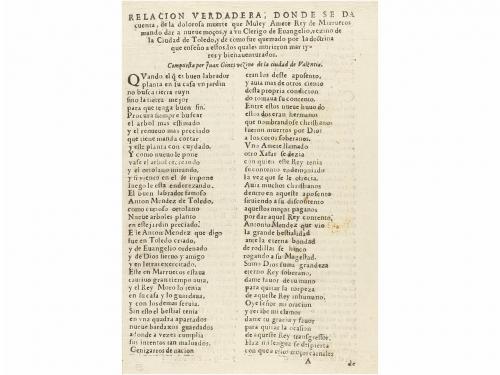 RELACION VERDADERA, DONDE SE DA
cuenta, de la dolorosa muerte que Muley Amete Rey de Marruecos
mando dar a nueue moços, y a vn Clerigo de Euangelio, vezino de
la Ciudad de Toledo, y de como fue quemado por la doctrina
que enseño a estos, los quales murieron martyres
y bienauenturados.
Compuesta por Juan Gines vezino de la ciudad de Valencia.
QVando el q̃ es buen labrador
planta en su casa vn jardin
no busca tierra ruyn
sino la tierra mejor
para que tenga buen fin.
Procura siempre buscar
el arbol mas estimado
y el renueuo mas preciado
que tiene manda cortar
y este planta con cuydado.
Y como nueuo le pone
vase el arbol creciendo
y el ortolano mirando,
y si viento en el se impone
luego le esta enderezando.
El buen labrador famoso
Anton Mendez de Toledo,
como curioso ortolano
Nueue arboles planto
en este jardin preciado.
E le Anton Mendez que digo
fue en Toledo criado,
y de Euangelio ordenado
y de Dios sieruo y amigo
y en letras exercitado.
Este en Marruecos estaua
cautiuo gran tiempo auia,
y el Rey Moro lo tenia
en su casa y lo guardaua,
y con los demas seruia.
Sin esto el bestial tenia
en vna quadra apartados
nueue bardaxos guardados
adonde a vezes cumplia
sus intentos tan maluados.
Genizaros de nacion
eran los deste aposento,
y auia mas de otros ciento
desta propria condicion
do tomaua su contento.
Entre estos nueue huuo dos
estos dos eran hermanos
que nombrandose christianos
fueron muertos por Dios
a los coros soberanos.
Vno Amete llamado
otro Xafar se dezia
con quien este Rey tenia
su contento endemoniado
la vez que se le ofrecia.
Auia muchos christianos
dentro en aqueste aposento
siruiendo a su discontento
aquestos moços paganos
por dar aquel Rey contento,
Antonio Mendez que vio
la grande bestialidad
ante la eterna bondad
de rodillas se hinco
rogando a su Magestad.
Sumo Dios suma grandeza
eterno Rey soberano,
dame fauor de tu mano
para quitar la torpeza
de aqueste Rey inhumano,
Oye señor mi oracion
y recibe mi clamor
dame tu gracia y fauor
para quitar la ocasion
de aqueste Rey transgressor.
Haz mi lengua se despierta
con que a estos moços carnales
A
de